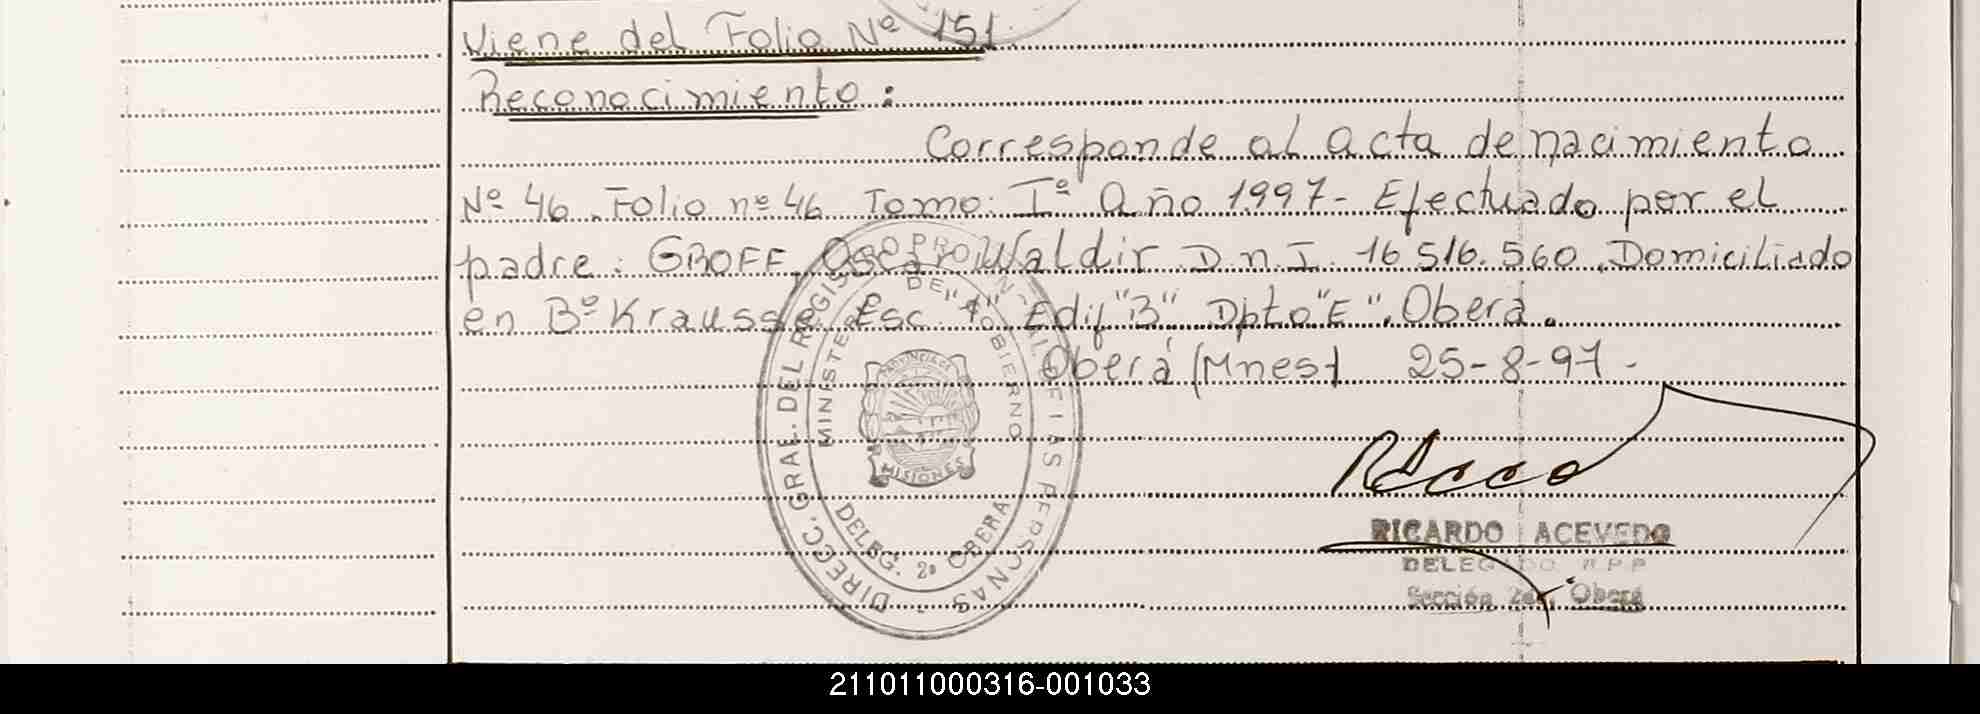 Viene del Folio Nº 151.
Reconocimiento:
Corresponde al acta de nacimiento
Nº 46 Folio nº 46 Tomo: Iº año 1997- Efectuado por el
padre: GROFF, Oscar Waldir D.n.I. 16.516.560. Domiciliado
en Bº Krausse Esc. "1" Edif "B" Dpto "E". Oberá.
Oberá (Mnes) 25-8-97-
DIRECC. GRAL. DEL REGISTRO PROVINCIAL DE LAS PERSONAS
MINISTERIO DE GOBIERNO
PROVINCIA DE
MISIONES
DELEG. 2ª OBERÁ
RICARDO ACEVEDO
DELEGADO RPP
Sección 2da. Oberá
211011000316-001033